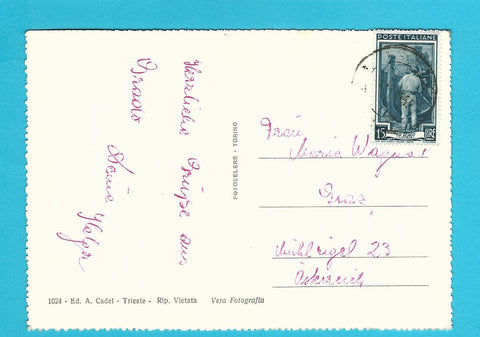 Herzliche Grüße aus
Grado
Deine Helga
FOTOCELERE - TORINO
POSTE ITALIANE
15 LIRE
Frau
Maria Wagner
Graz
Mühlriegel 23
Österreich
1024 - Ed. A. Cadel - Trieste - Rip. Vietata Vera Fotografia